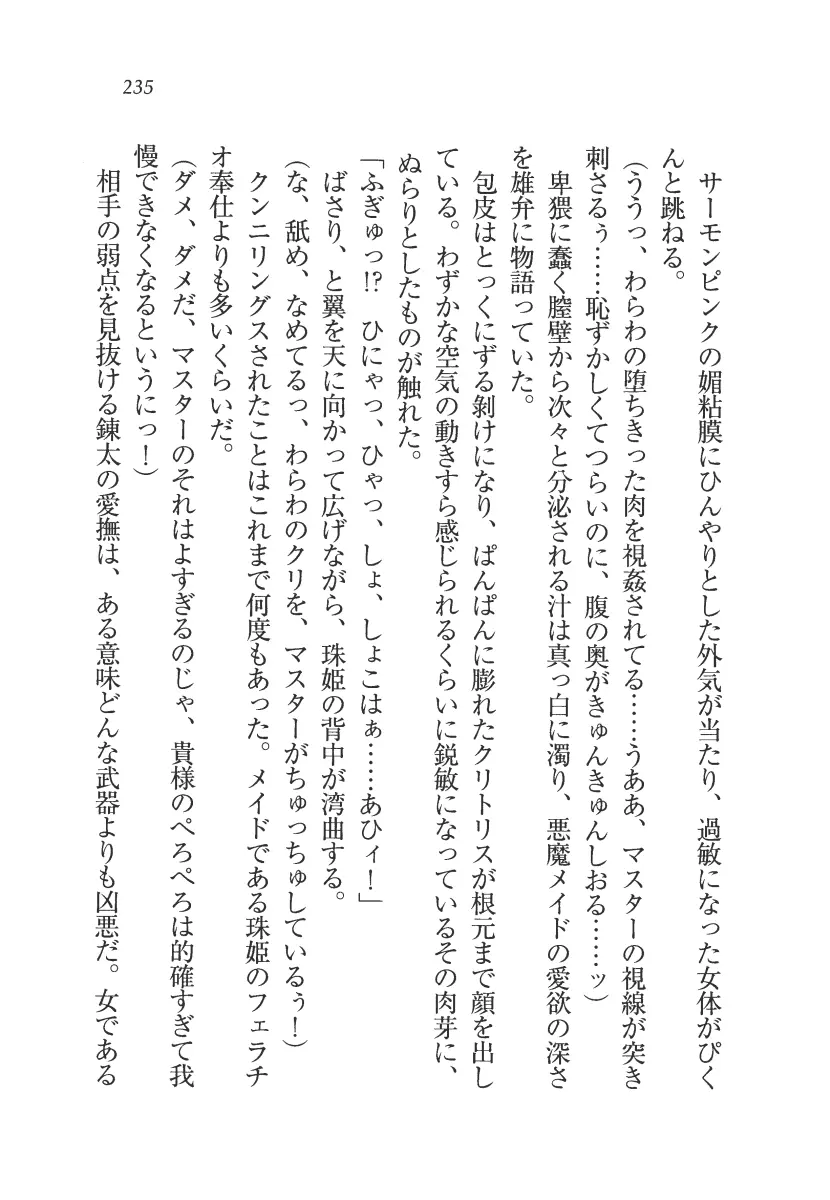 235
サーモンピンクの媚粘膜にひんやりとした外気が当たり、過敏になった女体がぴく
んと跳ねる。
（ううっ、わらわの堕ちきった肉を視姦されてる……うああ、マスターの視線が突き
刺さるぅ……恥ずかしくてつらいのに、腹の奥がきゅんきゅんしおる……ッ）
卑猥に蠢く膣壁から次々と分泌される汁は真っ白に濁り、悪魔メイドの愛欲の深さ
を雄弁に物語っていた。
包皮はとっくにずる剥けになり、ぱんぱんに膨れたクリトリスが根元まで顔を出し
ている。わずかな空気の動きすら感じられるくらいに鋭敏になっているその肉芽に、
ぬらりとしたものが触れた。
「ふぎゅっ!?　ひにゃっ、ひゃっ、しょ、しょこはぁ……あひィ！」
ばさり、と翼を天に向かって広げながら、珠姫の背中が湾曲する。
（な、舐め、なめてるっ、わらわのクリを、マスターがちゅっちゅしているぅ！）
クンニリングスされたことはこれまで何度もあった。メイドである珠姫のフェラチ
オ奉仕よりも多いくらいだ。
（ダメ、ダメだ、マスターのそれはよすぎるのじゃ、貴様のぺろぺろは的確すぎて我
慢できなくなるというにっ！）
相手の弱点を見抜ける錬太の愛撫は、ある意味どんな武器よりも凶悪だ。女である